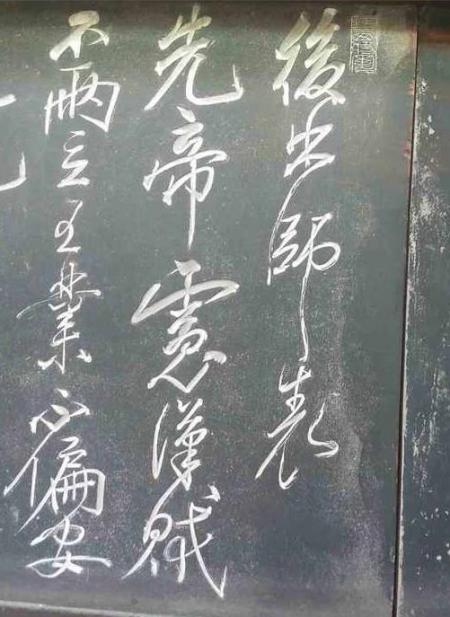 後出師表
先帝慮漢賊
不兩立王業不偏安